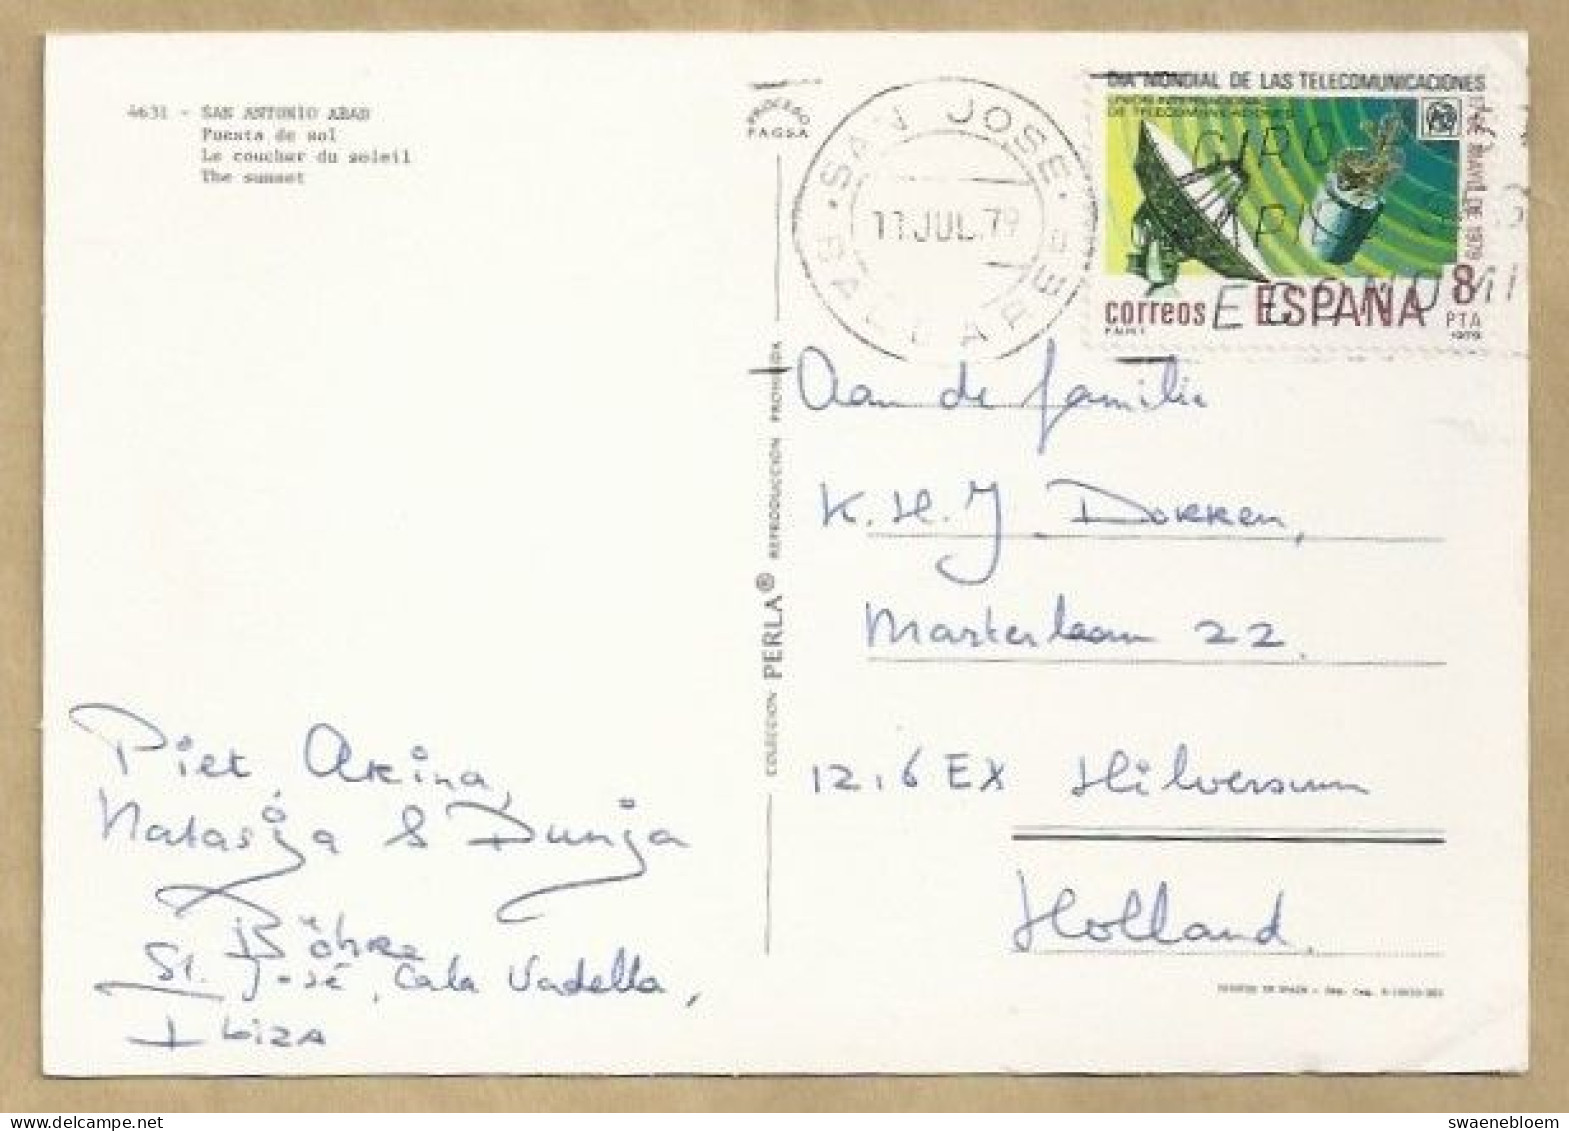 4631 - SAN ANTONIO ABAD
Puesta de sol
Le coucher du soleil
The sunset
PROCESO
F.A.G.S.A.
SAN JOSE
11 JUL. 79
BALEARES
DIA MONDIAL DE LAS TELECOMUNICACIONES
UNION INTERNACIONAL
DE TELECOMUNICACIONES
17 DE MAYO DE 1979
GIRO
correos ESPAÑA 8
PTA
F.N.M.T. 1979
COLECCION PERLA® REPRODUCCION PROHIBIDA
Aan de familie
K.H.J. Dokken,
Marterlaan 22.
1216 EX Hilversum
Holland.
Piet, Akina,
Natasja & Dunja
Böhre
St. José, Cala Vadella,
Ibiza
PRINTED IN SPAIN - Dep. Leg.
swaenebloem
www.delcampe.net